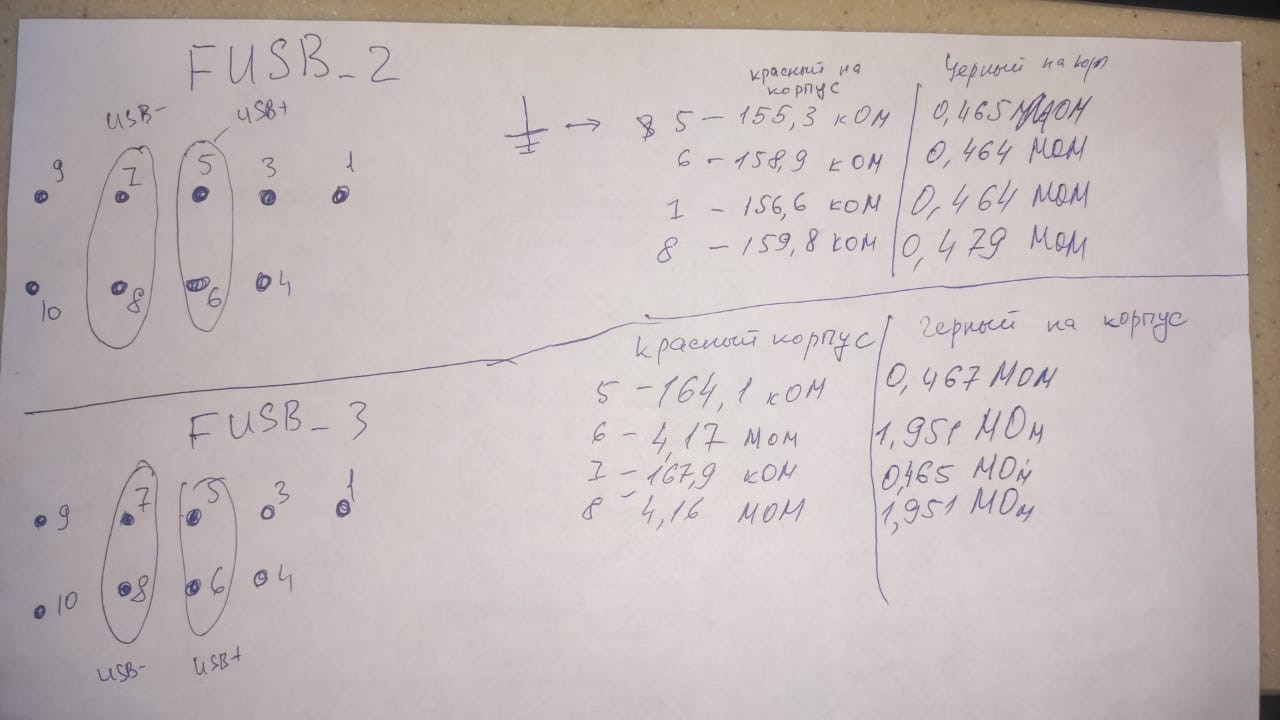 FUSB_2
USB- USB+
9 7 5 3 1
10 8 6 4
красный на корпус Черный на корп
→ 5 - 155,3 кОм 0,465 МОМ
6 - 158,9 кОм 0,464 МОМ
7 - 156,6 кОМ 0,464 МОМ
8 - 159,8 кОМ 0,479 МОМ
FUSB_3
9 7 5 3 1
10 8 6 4
USB- USB+
красный корпус Черный на корпус
5 - 164,1 кОМ 0,467 МОМ
6 - 4,17 МОМ 1,951 МОм
7 - 167,9 кОМ 0,465 МОм
8 - 4,16 МОМ 1,951 МОм